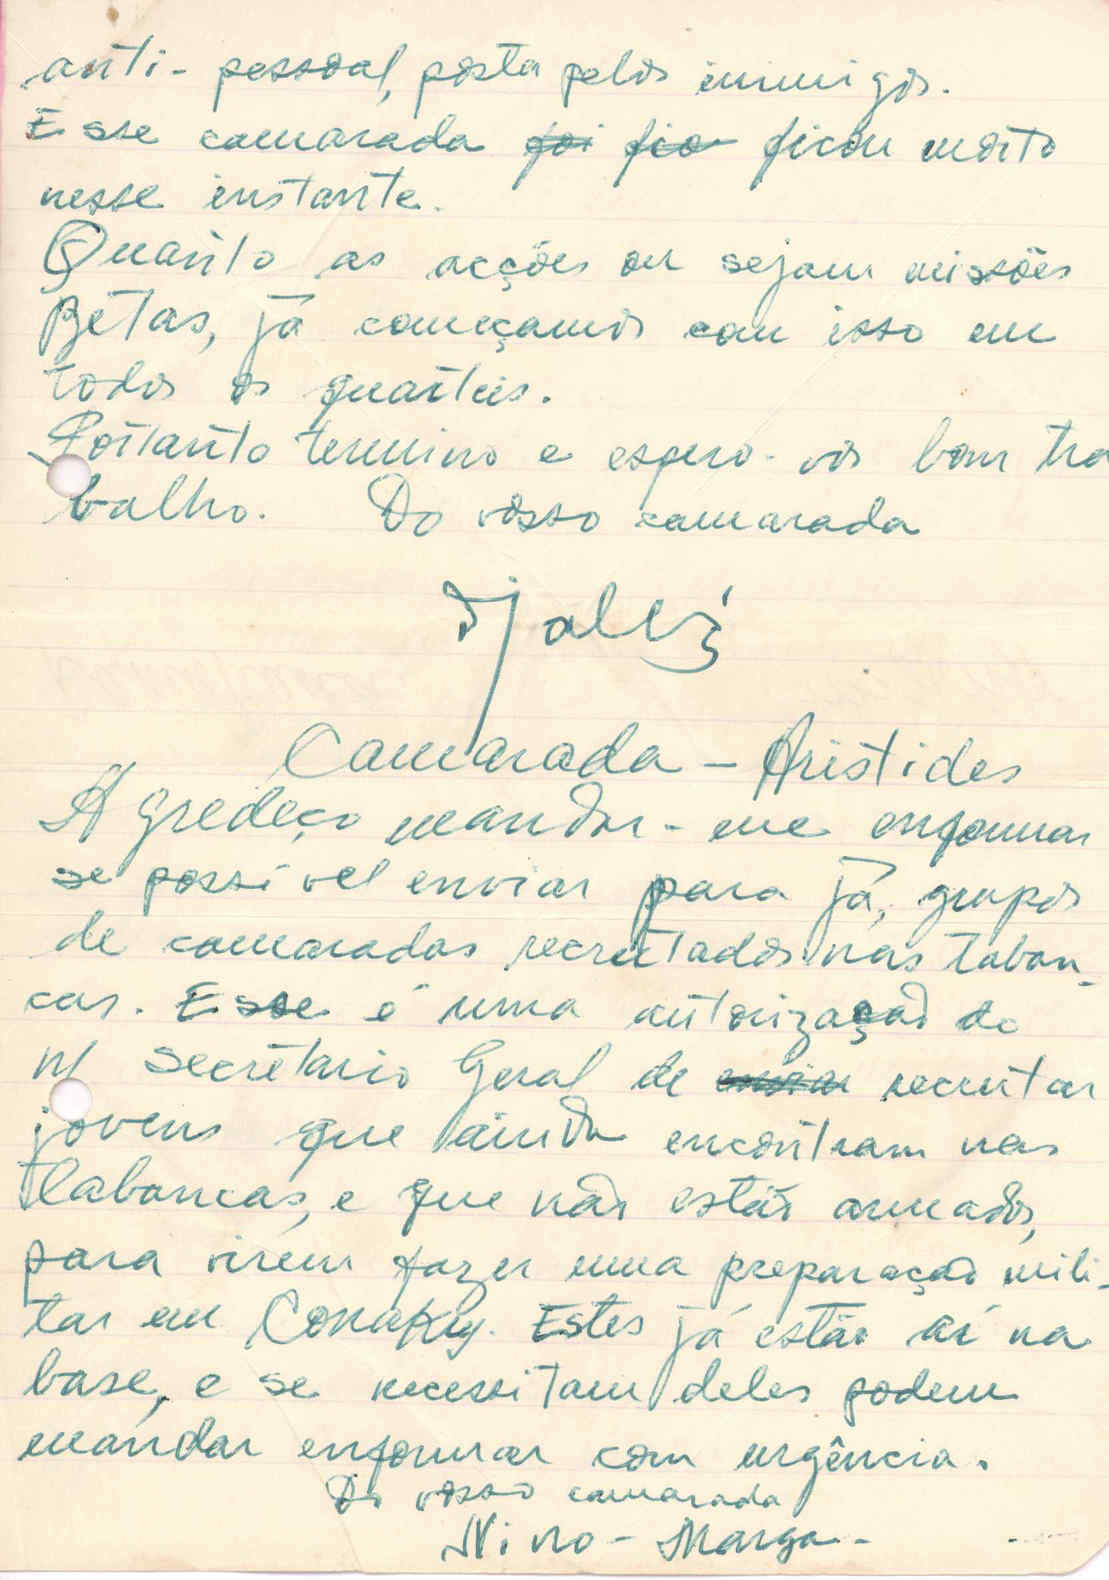 anti-pessoal, posta pelos inimigos.
Esse camarada foi fio ficou morto
nesse instante.
Quanto as acções ou sejam missões
Betas, já começamos com isso em
todos os quarteis.
Portanto termino e espero-vos bom tra
balho. Do vosso camarada
Djalló
Camarada - Aristides
Agredeço mandar-me enformar
se possível enviar para já, grupos
de camaradas recrutados nas taban-
cas. Esse é uma autorização do
n/ Secretario Geral de enviar recrutar
jovens que ainda encontram nas
tabancas, e que não estão armados,
para virem fazer uma preparação mili-
tar em Conakry. Estes já estão aí na
base, e se necessitam deles podem
mandar enformar com urgência.
Do vosso camarada
Nino - Marga -